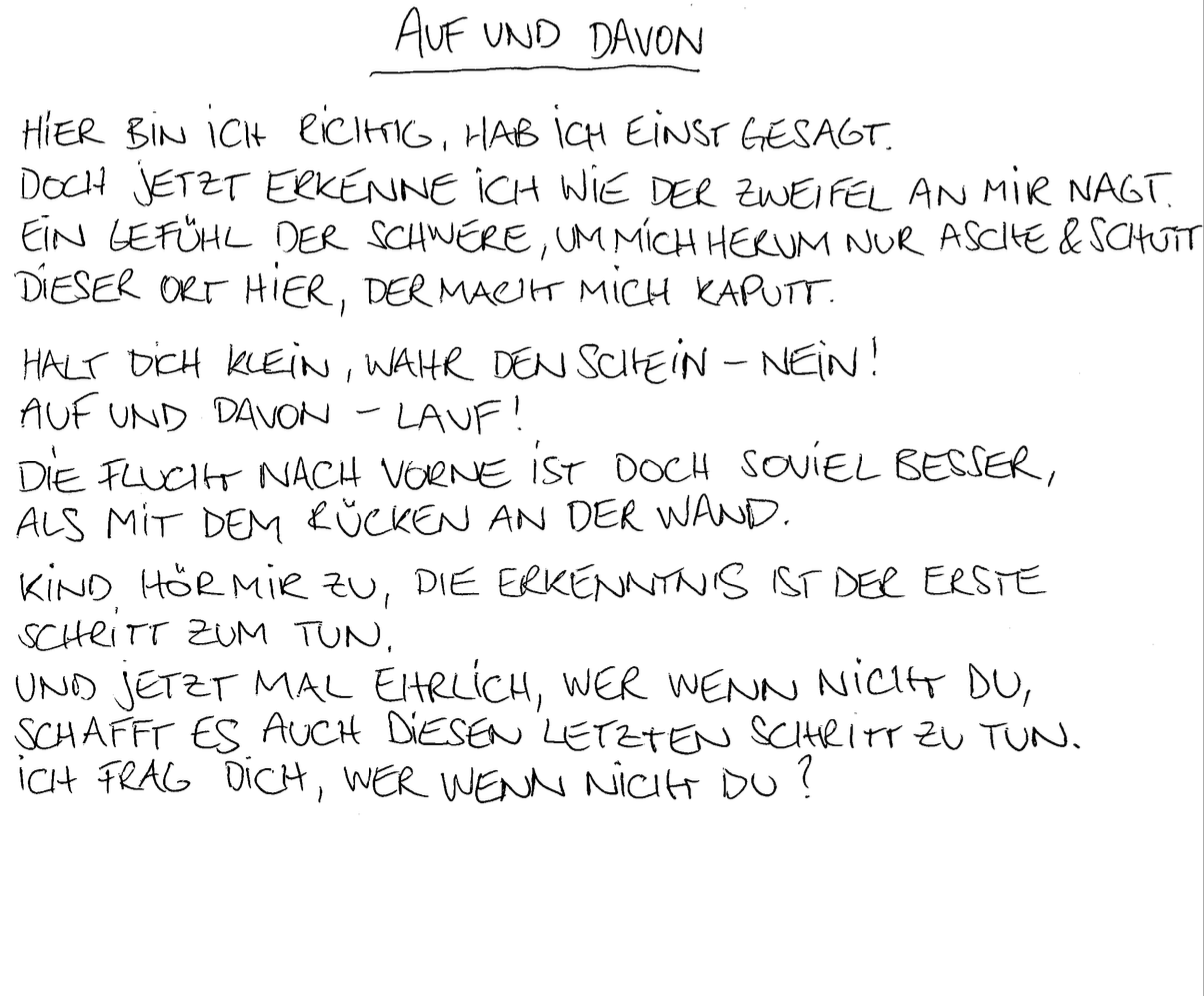 AUF UND DAVON
HiER BiN iCH RiCHTiG, HAB iCH EiNST GESAGT.
DOCH JETZT ERKENNE iCH WiE DER ZWEIFEL AN MiR NAGT.
EiN GEFÜHL DER SCHWERE, UM MiCH HERUM NUR ASCHE & SCHUTT
DiESER ORT HiER, DER MACHT MiCH KAPUTT.
HALT DiCH KLEiN, WAHR DEN SCHEiN – NEiN!
AUF UND DAVON – LAUF!
DiE FLUCHT NACH VORNE iST DOCH SOViEL BESSER,
ALS MiT DEM RÜCKEN AN DER WAND.
KiND HÖR MiR ZU, DIE ERKENNTNIS IST DER ERSTE
SCHRiTT ZUM TUN.
UND JETZT MAL EHRLiCH, WER WENN NiCHT DU,
SCHAFFT ES AUCH DiESEN LETZTEN SCHRITT ZU TUN.
iCH FRAG DiCH, WER WENN NiCHT DU?